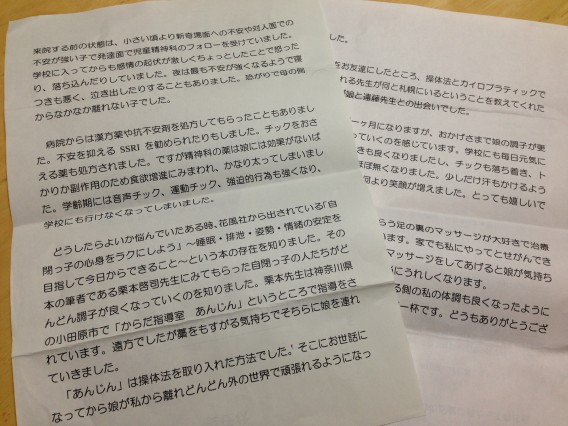 来院する前の状態は、小さい頃より新奇場面への不安や対人面での
不安が強い子で発達面で児童精神科のフォローを受けていました。
学校に入ってからも感情の起伏が激しくちょっとしたことで怒った
り、落ち込んだりしていました。夜は最も不安が強くなるようで寝
つきも悪く、泣き出したりすることもありました。恐がりで母の側
からなかなか離れない子でした。
病院からは漢方薬や抗不安剤を処方してもらったこともありまし
た。不安を抑える SSRI を勧められたりもしました。チックをおさ
える薬も処方されました。ですが精神科の薬は娘には効果がないば
かりか副作用のため食欲増進にみまわれ、かなり太ってしまいまし
た。学齢期には音声チック、運動チック、強迫的行為も強くなり、
学校にも行けなくなってしまいました。
どうしたらよいか悩んでいたある時、花風社から出されている「自
閉っ子の心身をラクにしよう」～睡眠・排泄・姿勢・情緒の安定を
目指して今日からできること～という本の存在を知りました。その
本の筆者である栗本啓司先生にみてもらった自閉っ子の人たちがど
んどん調子が良くなっていくのを知りました。栗本先生は神奈川県
の小田原市で「からだ指導室　あんじん」というところで指導をさ
れています。遠方でしたが藁をもすがる気持ちでそちらに娘を連れ
ていきました。
「あんじん」は操体法を取り入れた方法でした。そこにお世話に
なってから娘が私から離れどんどん外の世界で頑張れるようになっ
した。
をお友達にしたところ、操体法とカイロプラティックで
れる先生が何と札幌にいるということを教えてくれた
「娘と遠藤先生との出会いでした。
一ヶ月になりますが、おかげさまで娘の調子が更
っていくのを感じています。学校にも毎日元気に
きも良くなりましたし、チックも落ち着き、ト
ほぼ無くなりました。少しだけ汗もかけるよう
何より笑顔が増えました。とっても嬉しいで
らう足の裏のマッサージが大好きで治療
います。家でも私にやってとせがんでき
マッサージをしてあげると娘が気持ち
がにうれしくなります。
る側の私の体調も良くなったように
一杯です。どうもありがとうござ